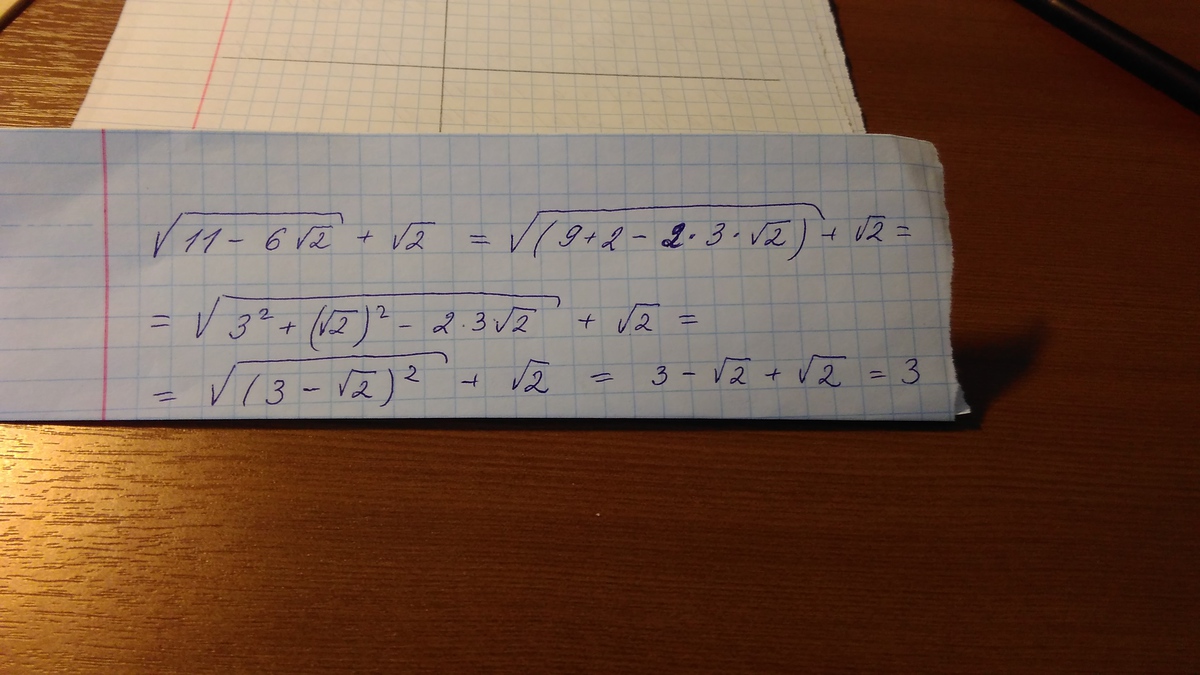 √(11 - 6√2) + √2 = √((9+2 - 2·3·√2)) + √2 =
= √(3² + (√2)² - 2·3·√2) + √2 =
= √((3 - √2)²) + √2 = 3 - √2 + √2 = 3